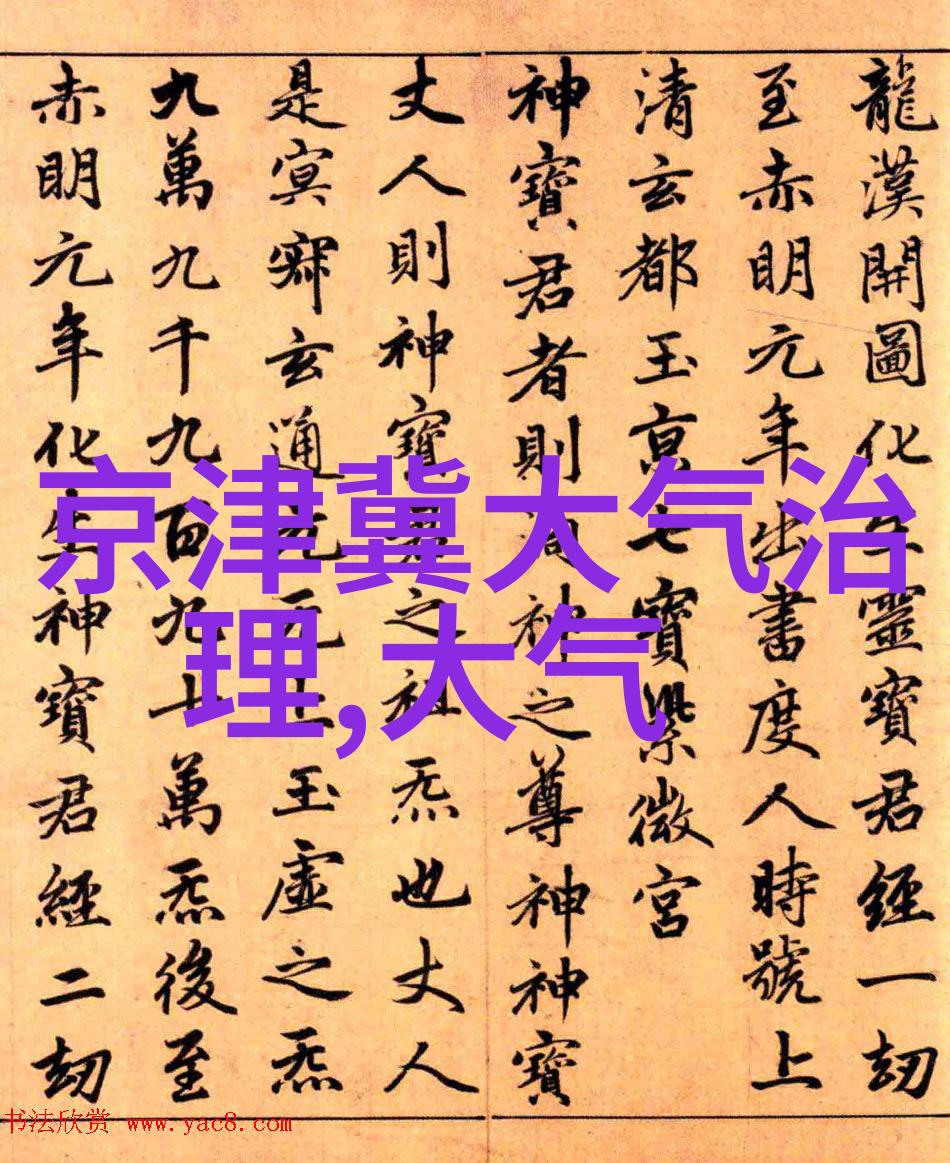 龍漢開圖化生靈寶君經一劫
至赤明元年出書度人時號上
清玄都玉亰七寶紫微宮
神寶君者則洞神之尊神神寶
丈人則神寶君之祖炁也丈人
是冥寂玄通元无上玉虛之炁
九萬九千九百九十萬炁後至
赤明元年化生神寶君經二劫
京津冀大气治
理,大气
书法欣赏 www.yac8.com